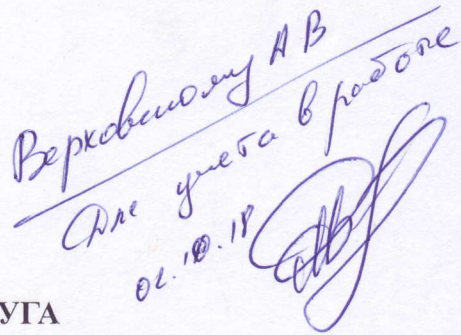 Верховскому А В
Для учета в работе
02.10.18
УГА